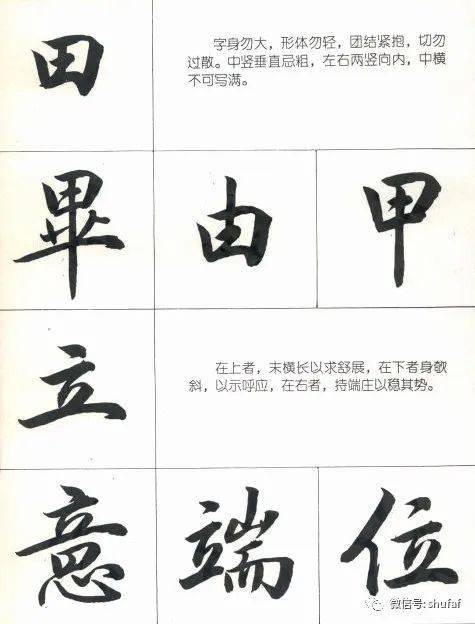 田
字身勿大，形体勿轻，团结紧抱，切勿
过散。中竖垂直忌粗，左右两竖向内，中横
不可写满。
畢 由 甲
立
在上者，末横长以求舒展，在下者身敧
斜，以示呼应，在右者，持端庄以稳其势。
意 端 位
微信号: shufaf